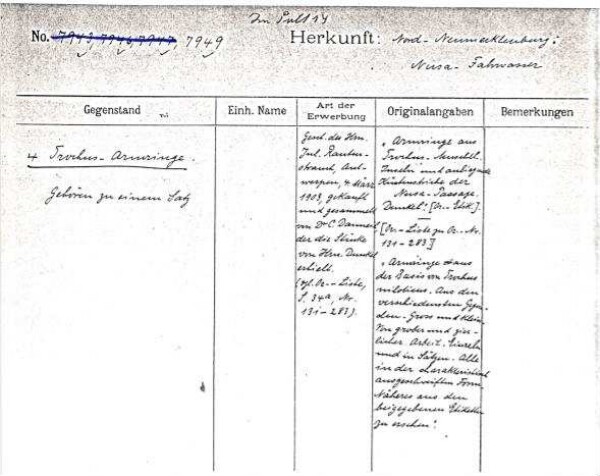 Im Pult 14
No. 7943, 7946, 7947, 7949
Herkunft: Nord-Neumecklenburg:
Nusa-Fahrwasser
Gegenstand
Einh. Name
Art der Erwerbung
Originalangaben
Bemerkungen
4 Trochus-Armringe.
Gehören zu einem Satz
Gesch. des Hrn.
Jul. Rauten-
strauch, Ant-
werpen, 4 März
1903, gekauft
und gesammelt
von Dr C. Danneil
der die Stücke
von Hrn. Dunkel
erhielt.
(vgl. Or.-Liste,
S. 34a, Nr.
131-283).
"Armringe aus
Trochus-Muschel.
Inseln und anliegende
Küstenstriche der
Nusa-Passage.
Dunkel." [Or.-Etik.].
[Or.-Liste zu Or.-Nr.
131-283]
"Armringe aus
der Basis von Trochus
niloticus. Aus den
verschiedensten Gegen-
den. Gross und klein.
Von grober und zier-
licher Arbeit. Einzeln
und in Sätzen. Alle
in der charakteristisch
ausgeschweiften Form.
Näheres aus den
beigegebenen Etiketten
zu ersehen."